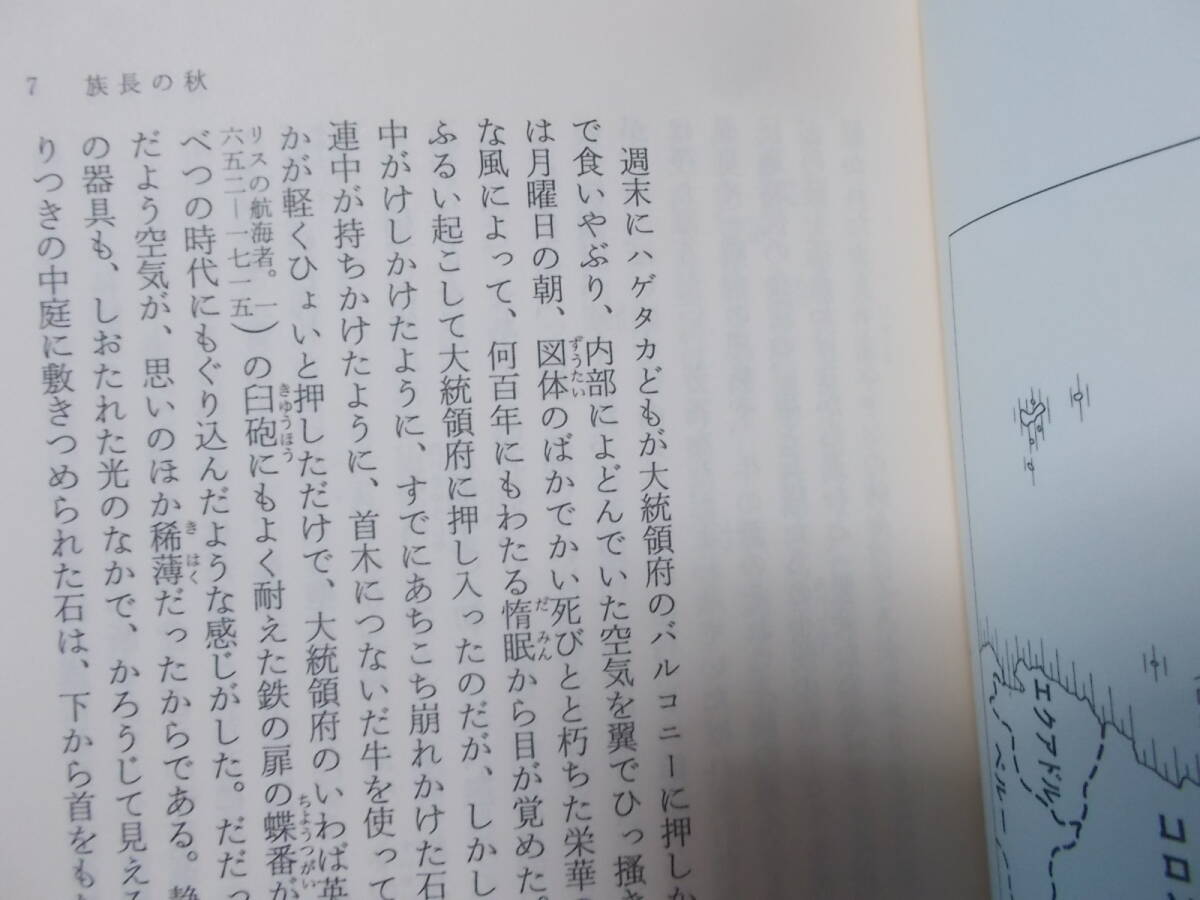 7 族長の秋
週末にハゲタカどもが大統領府のバルコニーに押しか
で食いやぶり、内部によどんでいた空気を翼でひっ掻き
は月曜日の朝、図体のばかでかい死びとと朽ちた栄華の
な風によって、何百年にもわたる惰眠から目が覚めた。
ふるい起こして大統領府に押し入ったのだが、しかし
中がけしかけたように、すでにあちこち崩れかけた石
連中が持ちかけたように、首木につないだ牛を使って
かが軽くひょいと押しただけで、大統領府のいわば英
リスの航海者。一
六五二―一七一五)の臼砲にもよく耐えた鉄の扉の蝶番が
べつの時代にもぐり込んだような感じがした。だだっ
だよう空気が、思いのほか稀薄だったからである。静
の器具も、しおたれた光のなかで、かろうじて見える
りつきの中庭に敷きつめられた石は、下から首をも
ずうたい
だみん
きゅうほう
ちょうつがい
きはく
エクアドル
ペルー
コロン